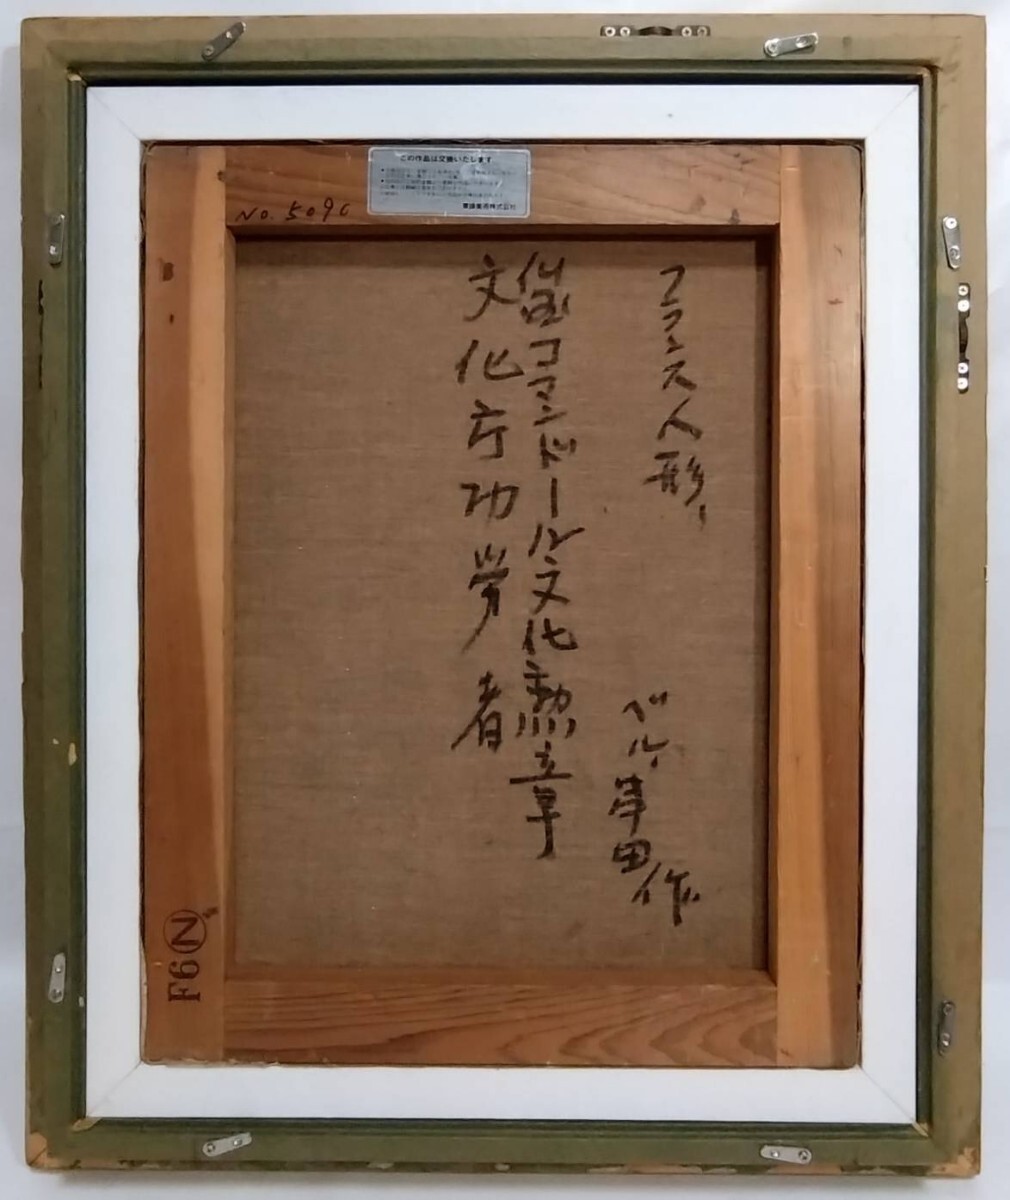 この作品は交換いたします
No. 509C
フランス人形、
ベル・串田作
仏国コマンドール文化勲章
文化庁功労者
F6 N